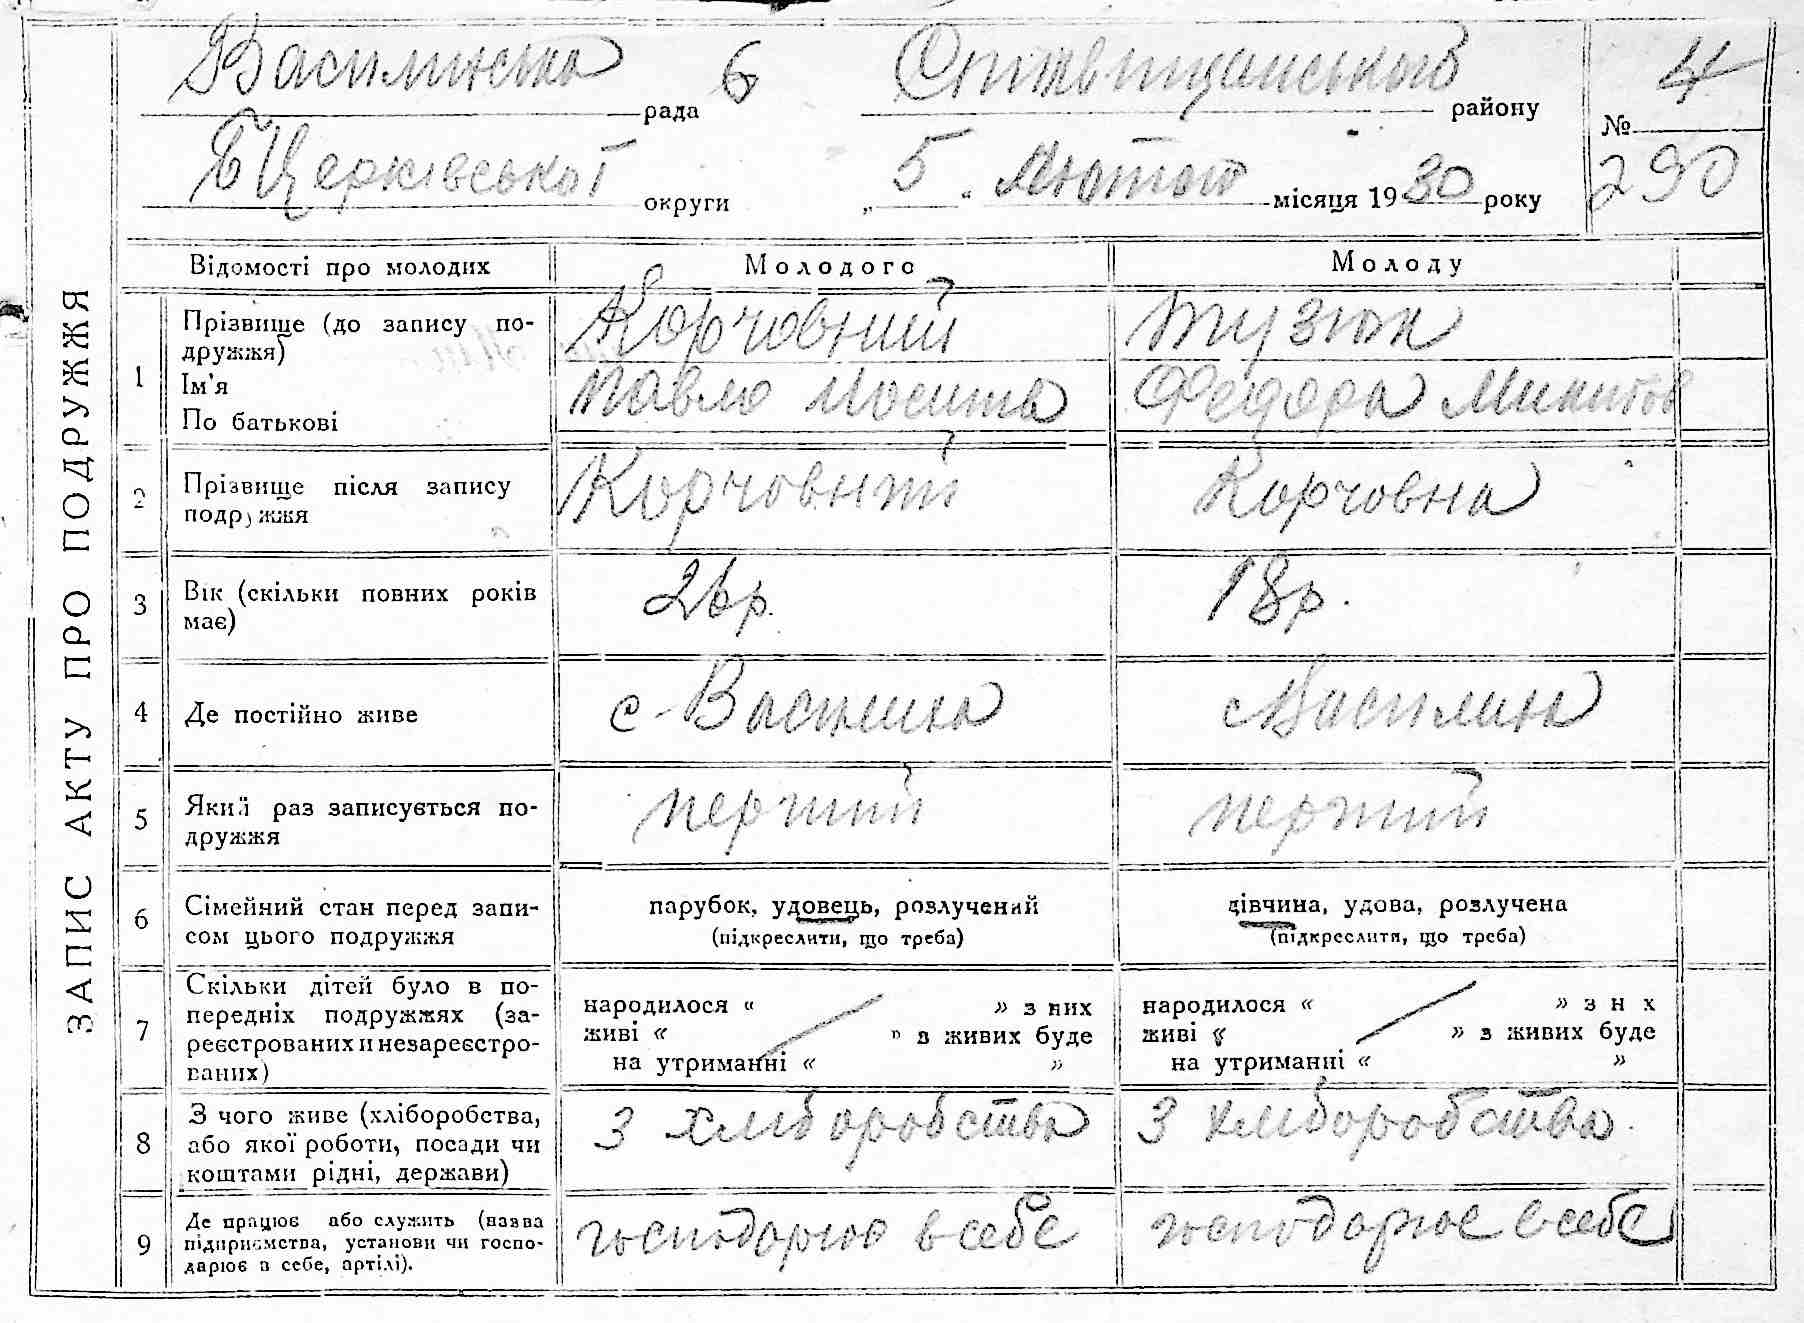 ЗАПИС АКТУ ПРО ПОДРУЖЖЯ
Василинська рада 6 району
БЦерківської округи „5“ Лютого місяця 1930 року
№ 4
290
Відомості про молодих Молодого Молоду
1 Прізвище (до запису по-
дружжя)
Ім'я
По батькові
Корчовний
Павло
Тузюк
Федора Микитов
2 Прізвище після запису
подружжя
Корчовний
Корчовна
3 Вік (скільки повних років
має)
26р.
18р.
4 Де постійно живе
с. Василиха
с Василиха
5 Який раз записується по-
дружжя
перший
перший
6 Сімейний стан перед запи-
сом цього подружжя
парубок, удовець, розлучений
(підкреслити, що треба)
дівчина, удова, розлучена
(підкреслити, що треба)
7 Скільки дітей було в по-
передніх подружжях (за-
реєстрованих и незареєстро-
ваних)
народилося « » з них
живі « » з живих буде
на утриманні « »
народилося « » з н х
живі « » з живих буде
на утриманні « »
8 З чого живе (хліборобства,
або якої роботи, посади чи
коштами рідні, держави)
З хліборобства
З хліборобства
9 Де працює або служить (назва
підприємства, установи чи госпо-
дарює в себе, артілі).
господарює в себе
господарює в себе